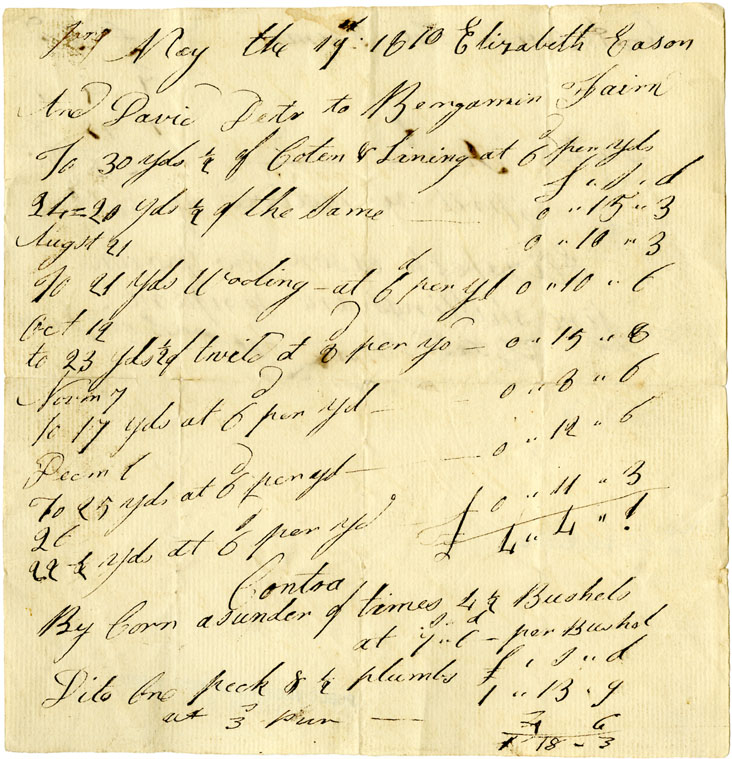 May the 19th 1810 Elizabeth Eason
And David Detr to Bengamin Fairn
To 30 yds ½ of Coten & Lining at 6d per yds
£ " s " d
0 " 15 " 3
24=20 yds ½ of the same — 0 " 10 " 3
Augst 21
To 21 yds Wooling – at 6d per yd 0 " 10 " 6
Oct 12
to 23 yds ½ of twild at 8d per yd – 0 " 15 " 8
Novm 7
To 17 yds at 6d per yd – 0 " 8 " 6
Decm 1
To 25 yds at 6d per yd — 0 " 12 " 6
26
22 ½ yds at 6d per yd 0 " 11 " 3
£ 4 " 4 " 1
Contra
By Corn asunder of times 4 ½ Bushels
at 7s " 6d – per Bushel
£ " s " d
Dito One peck & ½ plumbs 1 " 13 " 9
at 3 pur — 4 6
1 " 18 – 3